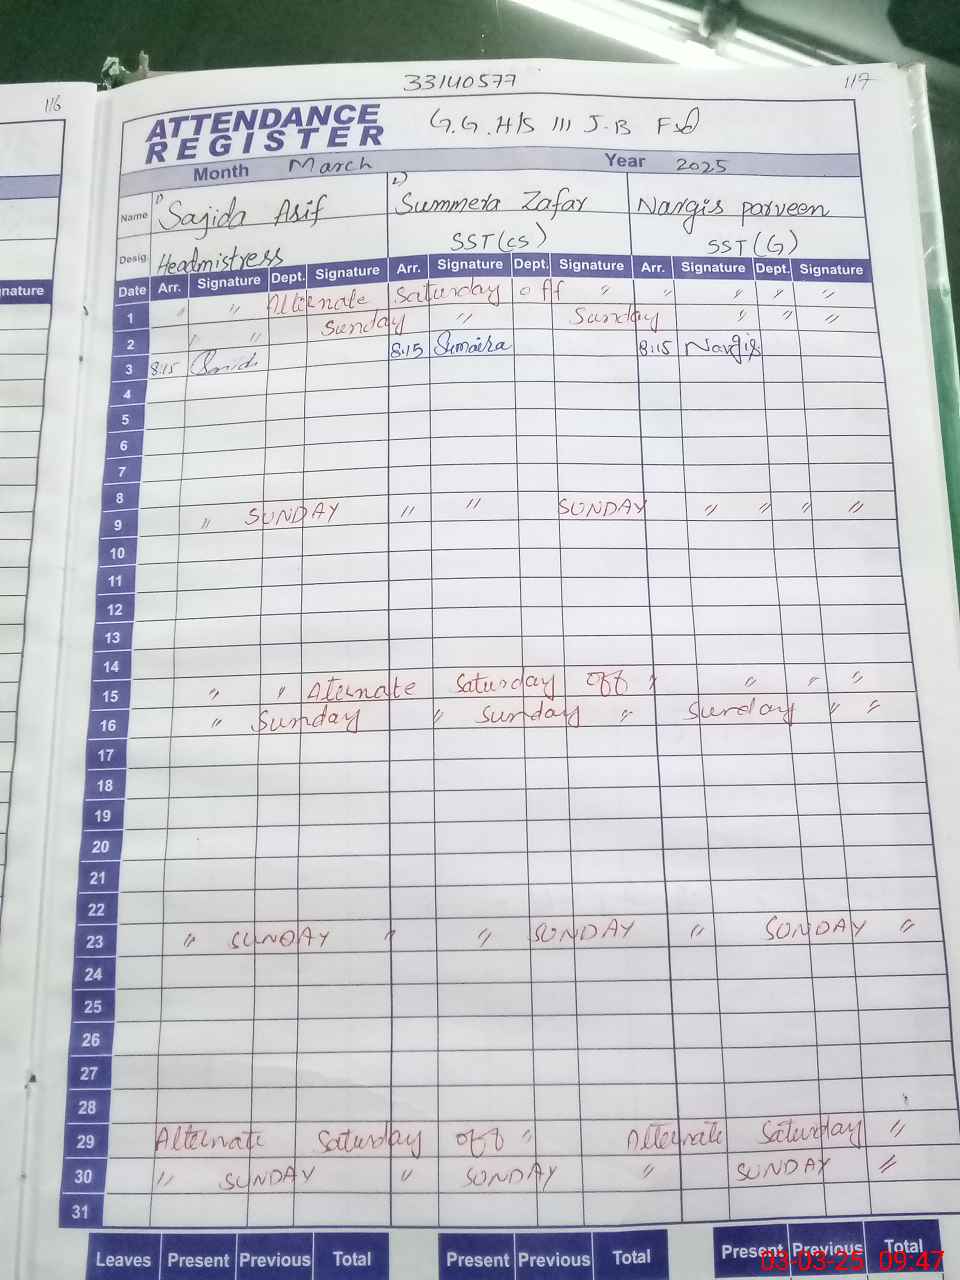 116
33140577
117
ATTENDANCE REGISTER
G.G.H/S 111 J.B Fsd
Month March Year 2025
Name 1) Sajida Asif 2) Summera Zafar Nargis parveen
Desig. Headmistress SST(cs) SST(G)
nature
Date Arr. Signature Dept. Signature Arr. Signature Dept. Signature Arr. Signature Dept. Signature
1 " " Alternate Saturday off " " " " "
2 " " Sunday " Sunday " " "
3 8:15 8:15 Sumaira 8:15 Nargis
4
5
6
7
8
9 " SUNDAY " " SUNDAY " " " "
10
11
12
13
14
15 " " Alternate Saturday off " " " "
16 " Sunday " Sunday " Sunday " "
17
18
19
20
21
22
23 " SUNDAY " " SUNDAY " SUNDAY "
24
25
26
27
28
29 Alternate Saturday off " Alternate Saturday "
30 " SUNDAY " SUNDAY " SUNDAY "
31
Leaves Present Previous Total Present Previous Total Present Previous Total
03-03-25 09:47